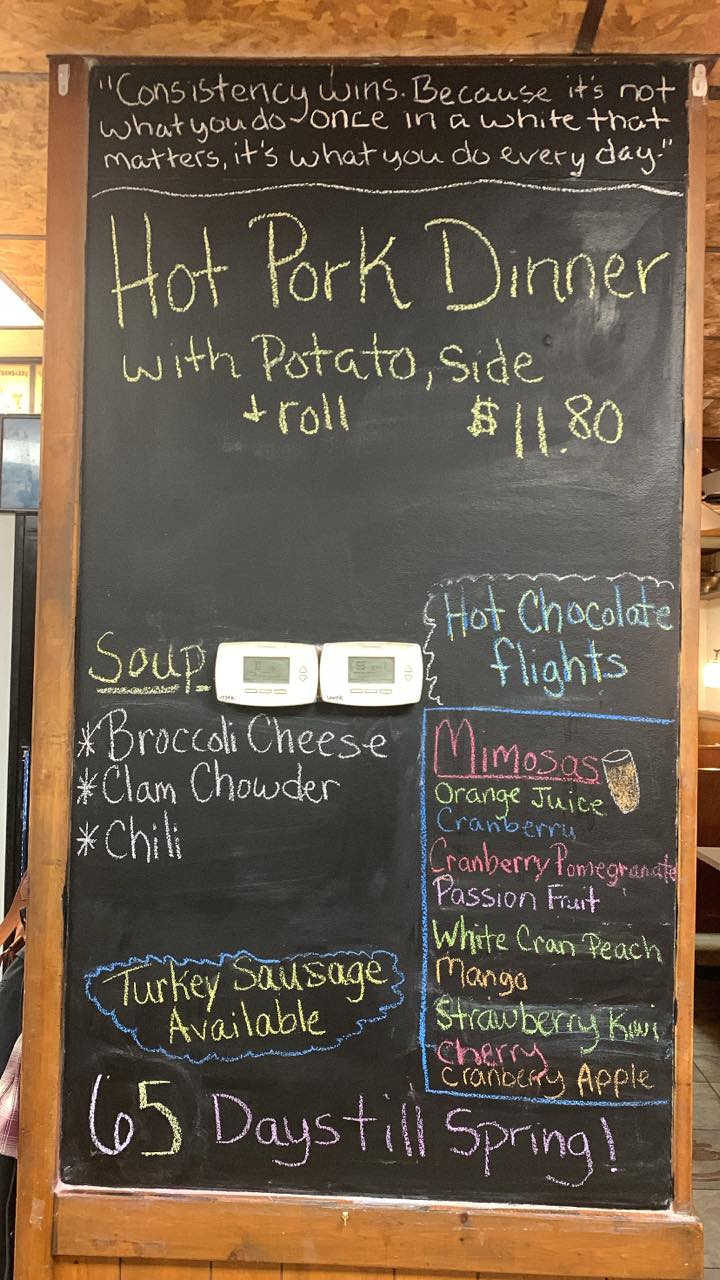 "Consistency wins. Because it's not
what you do once in a white that
matters, it's what you do every day."
Hot Pork Dinner
with Potato, side
+ roll $11.80
Soup
*Broccoli Cheese
*Clam Chowder
*Chili
Hot Chocolate
flights
Mimosas
Orange Juice
Cranberry
Cranberry Pomegranate
Passion Fruit
White Cran Peach
Mango
Strawberry Kiwi
Cherry
Cranberry Apple
Turkey Sausage
Available
65 Days till Spring!